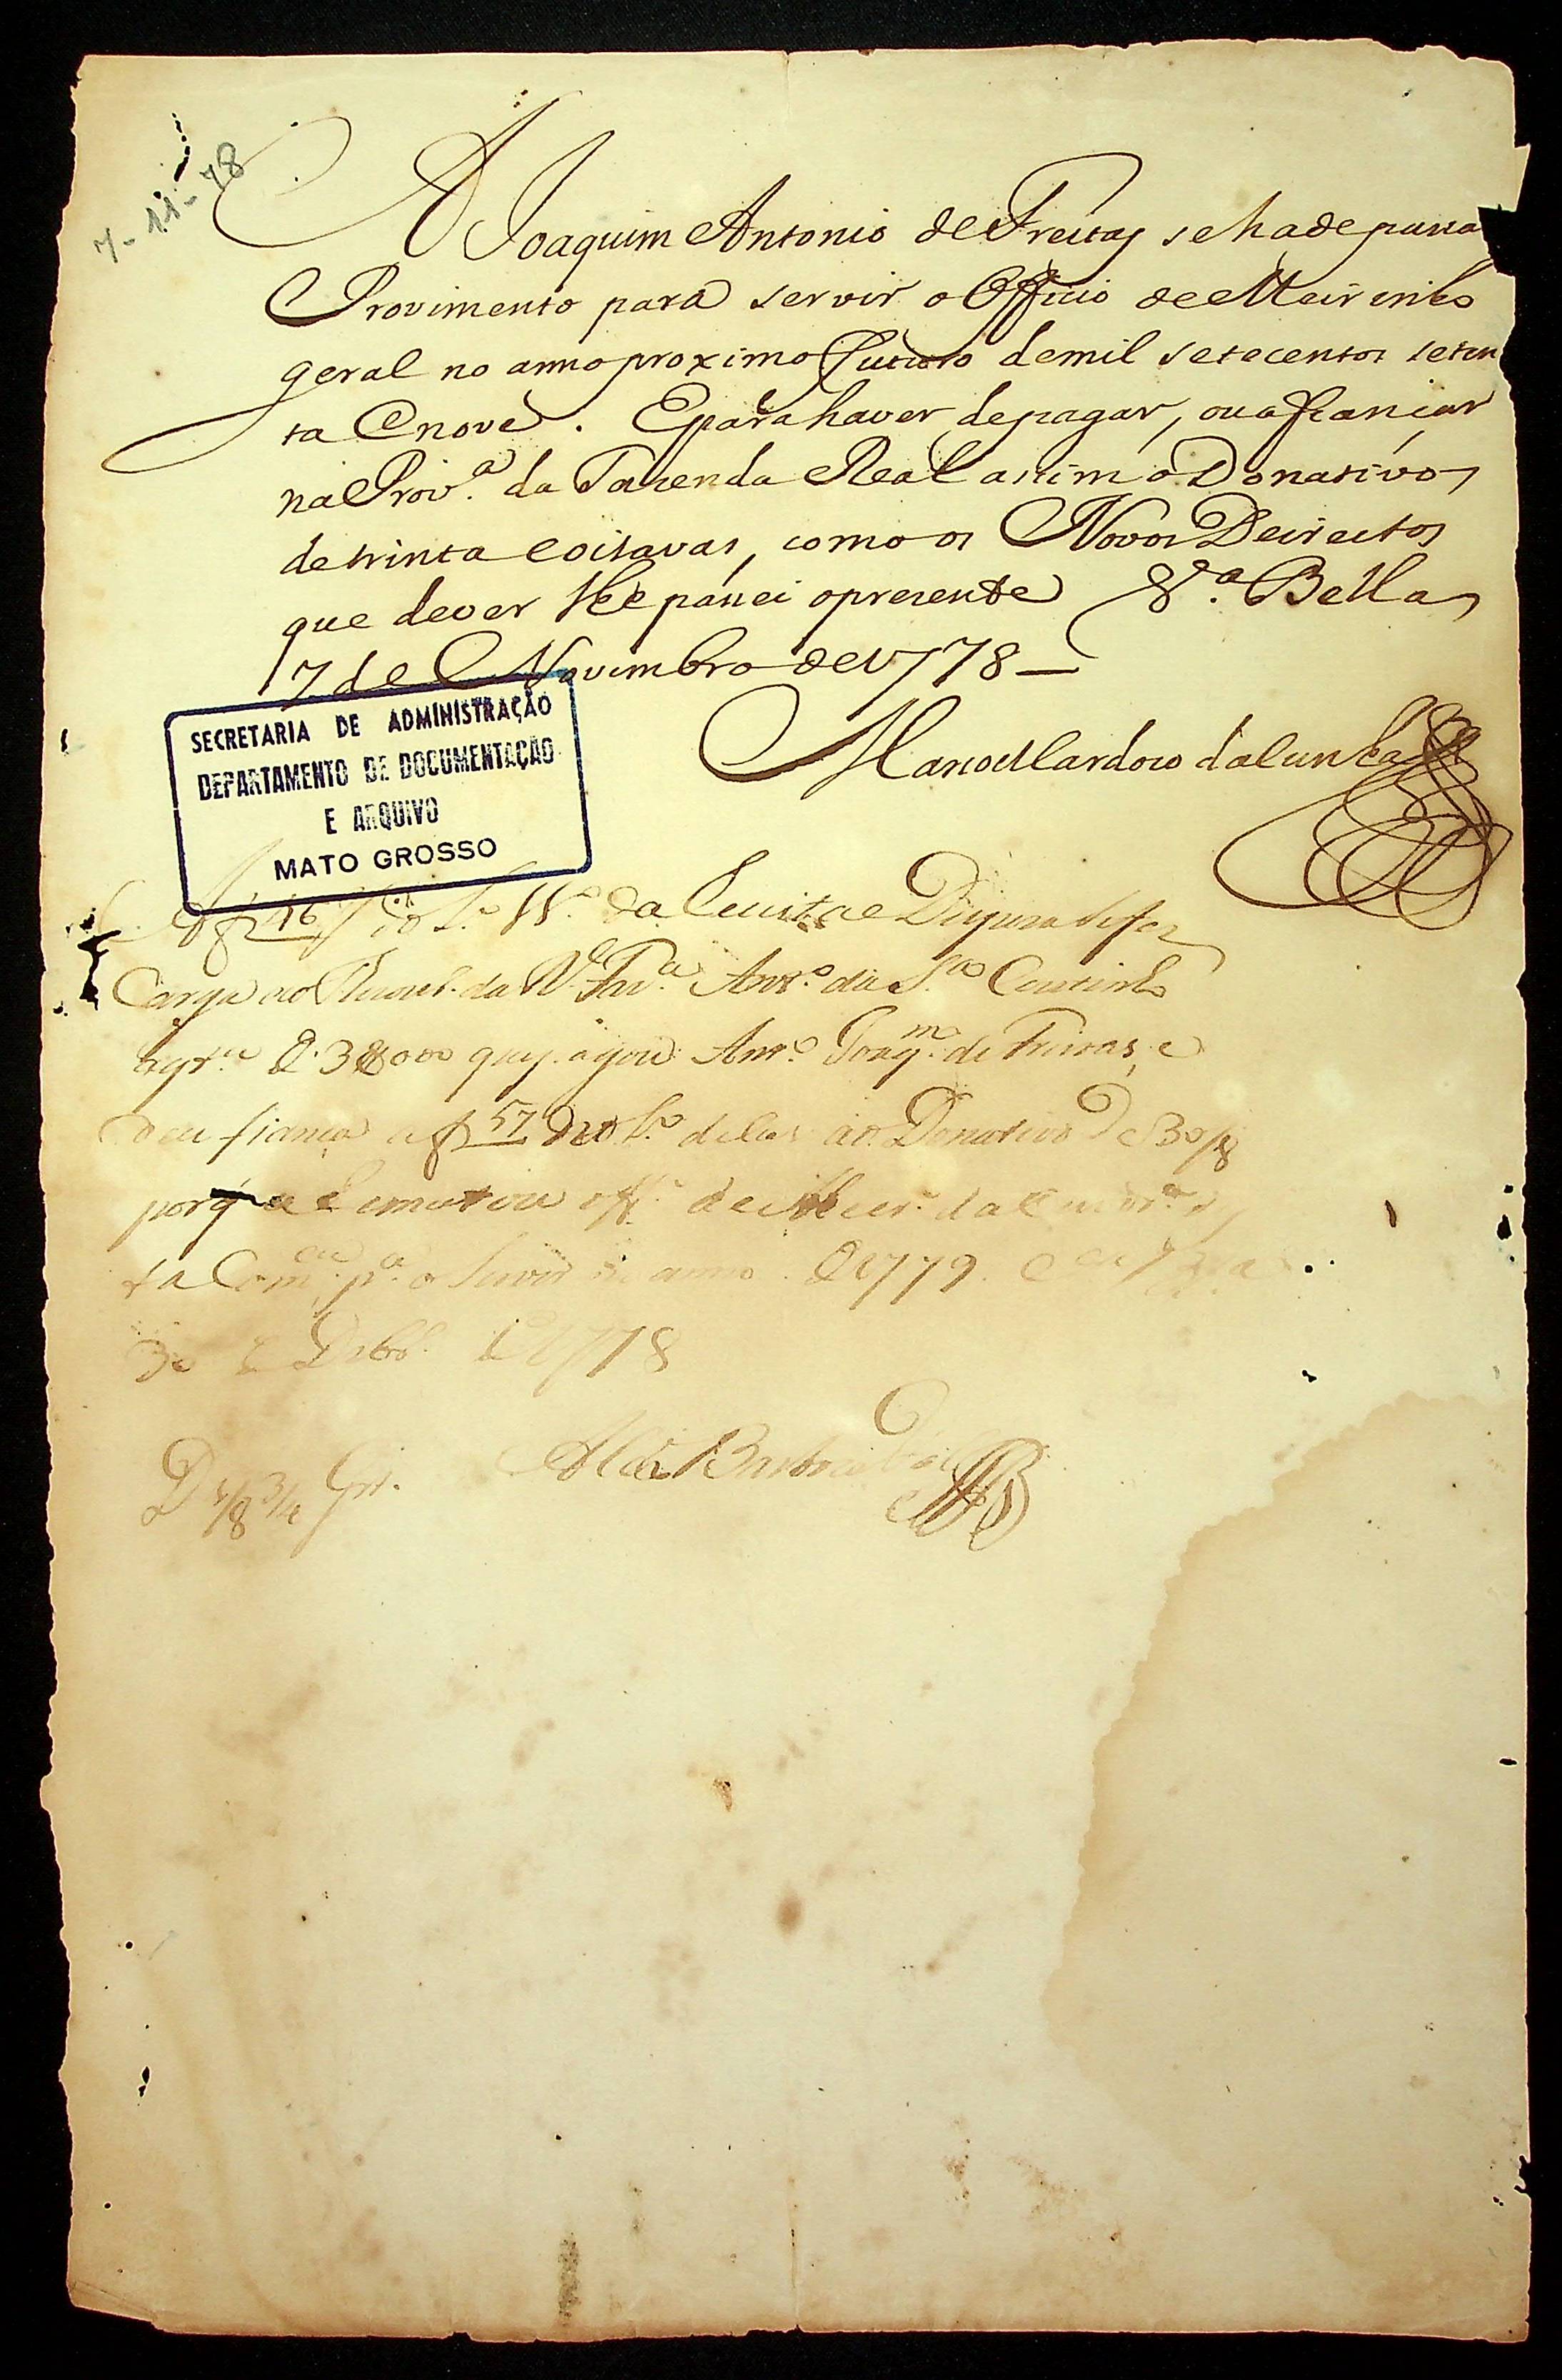 7-11-78
A Joaquim Antonio de Freitas se ha de passa
Provimento para servir o Officio de Meirinho
geral no anno proximo futuro de mil setecentos seten
ta e nove. E para haver de pagar, ou afiançar
na Prov.ª da Fazenda Real assim o Donativo
de trinta e oitavas, como os Novos Direitos
que dever lhe passei o presente V.ª Bella
17 de Novembro de 1778
Manoel Cardozo da Cunha
SECRETARIA DE ADMINISTRAÇÃO
DEPARTAMENTO DE DOCUMENTAÇÃO
E ARQUIVO
MATO GROSSO
Af 46 do L.º da Receita e Despeza se fez
Carga ao da R. Faz.ª Ant.º da S.ª Coutinho
que pagou Ant.º Joaq.m de Freitas, e
deu fiança af 57 do L.º dellas ao Donativo de 30/8
porq a Rematou off.º de Meir.
ta Com.ca p.ª o Servir no anno de 1779
30 de Dezbr.º de 1778
Barboza